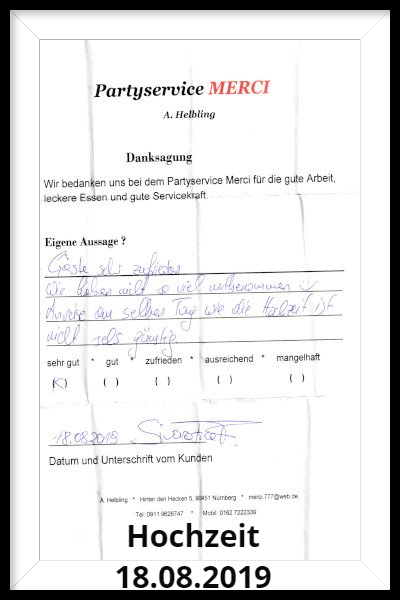 Partyservice MERCI
A. Helbling
Danksagung
Wir bedanken uns bei dem Partyservice Merci für die gute Arbeit,
leckere Essen und gute Servicekraft.
Eigene Aussage ?
Gäste sehr zufrieden
Wir haben nicht so viel mitbekommen
Anreise am selben Tag wie die Hochzeit ist
nicht sehr günstig
sehr gut * gut * zufrieden * ausreichend * mangelhaft
(X) ( ) ( ) ( ) ( )
18.08.2019
Datum und Unterschrift vom Kunden
A. Helbling * Hinter den Hecken 5, 90451 Nürnberg * merci.777@web.de
Tel: 0911 9626747 * Mobil: 0162 7222339
Hochzeit
18.08.2019